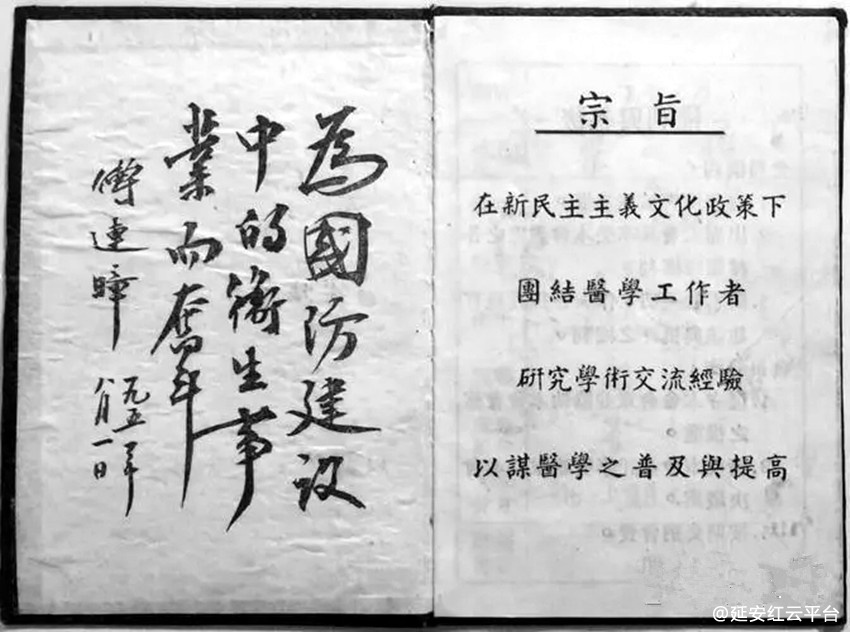 為國防建设
中的衛生事
業而奮斗
傅連暲
一九五一年
八月一日
宗旨
在新民主主義文化政策下
團結醫學工作者
研究學術交流經驗
以謀醫學之普及與提高
@延安红云平台